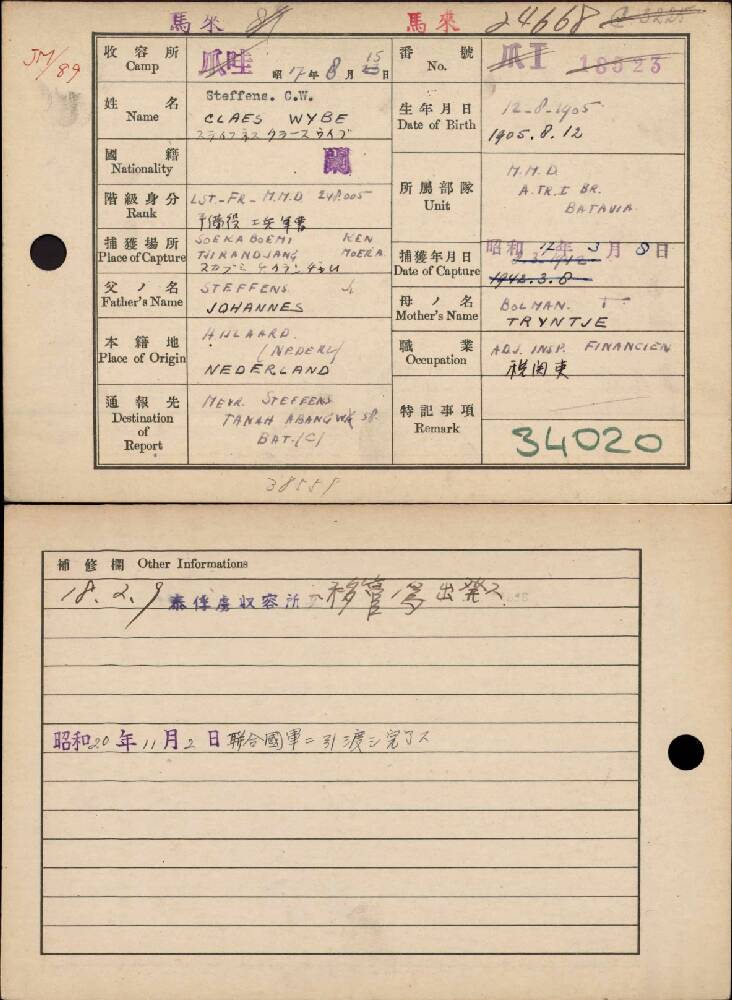 馬來
馬來 24668
JM/89
收容所 Camp 爪哇 昭17年8月15日
番號 No. 爪I 18923
姓名 Name Steffens. C.W.
CLAES WYBE
生年月日 Date of Birth 12-8-1905
1905.8.12
國籍 Nationality 蘭
階級身分 Rank LST-FR- M.M.D.
予備役 工兵軍曹
所属部隊 Unit M.M.D.
A.TR.I BR.
BATAVIA
捕獲場所 Place of Capture SOEKABOEMI
TJIKANDJANG
捕獲年月日 Date of Capture 昭和17年3月8日
1942.3.8
父ノ名 Father's Name STEFFENS
JOHANNES
母ノ名 Mother's Name BOLMAN.
TRYNTJE
本籍地 Place of Origin HIJLAARD.
(NEDERL)
NEDERLAND
職業 Occupation ADJ. INSP. FINANCIEN
税関吏
通報先 Destination of Report MEVR. STEFFENS
TANAH ABANG
BAT.(C)
特記事項 Remark
34020
補修欄 Other Informations
18.2.9 泰俘虜収容所ヘ移管ノ為出発ス
昭和20年11月2日聯合國軍ニ引渡シ完了ス